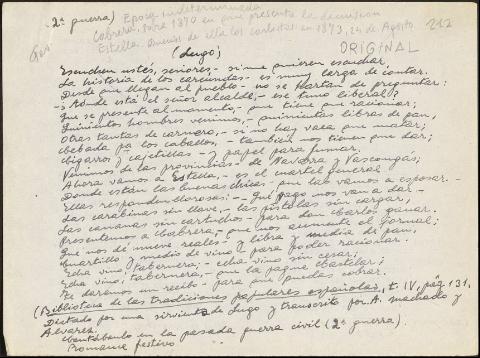 (2ª guerra) Epoca indeterminada
Cabrera, sobre 1870 en que presenta la dimisión
Estella. Dueños de ella los carlistas en 1873, 24 de Agosto
212
ORIGINAL
(Lugo)
Escuchen ustés, señores,- si me quieren escuchar,
La historia de los carcundas- es muy larga de contar.
Desde que llegan al pueblo- no se hartan de preguntar:
-¿Adonde está el señor alcalde,- ese tuno liberal?
Que se presente al momento,- que tiene que racionar;
Quinientos hombres venimos,- quinientas libras de pan,
Otras tantas de carnero,- si no hay vaca que matar;
Cebada pa los caballos,- tambien nos tienen que dar;
Cigarros y cajetillas- y papel para fumar.
Venimos de las provincias- de Navarra y Vascongás;
Ahora vamos a Estella,- es el cuartel general
Donde están las buenas chicas- que las vamos a esposar.-
Ellas responden llorosas:- -¿Qué pago nos van a dar-
Las carabinas sin llave,- las pistolas sin cargar,
Las cananas sin cartuchos- para don Carlos ganar.
Presentemos a Cabrera,- que nos aumente el jornal;
Que nos dé nueve reales- y libra y media de pan,
Cuartillo y medio de vino- para poder racionar.
Echa vino, tabernera;- echa vino sin cesar;
Echa vino, tabernera,- que la pague Castelar;
Te daremos un recibo- para que puedas cobrar.
(Biblioteca de las tradiciones populares españolas, t. IV, pág 131.
Dictado por una sirvienta de Lugo y transcrito por A. Machado y
Alvarez.
Cantábanlo en la pasada guerra civil (2ª guerra).
Romance festivo